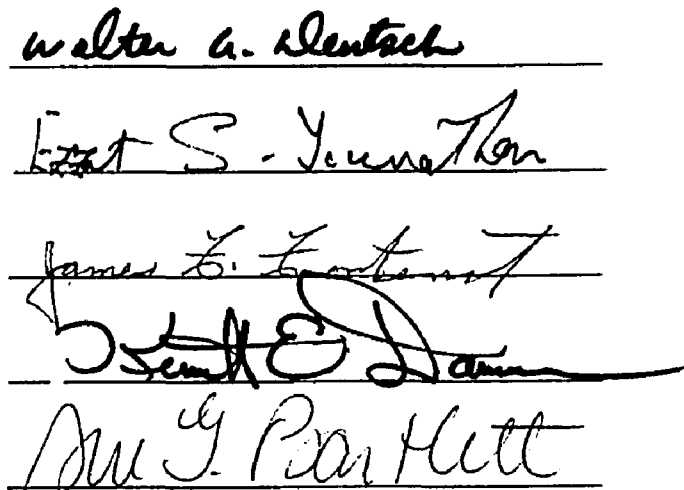 Walter A. Deutsch
Ezzat S. Younathan
James E. Fontenot
E.
Sue G. Bartlett